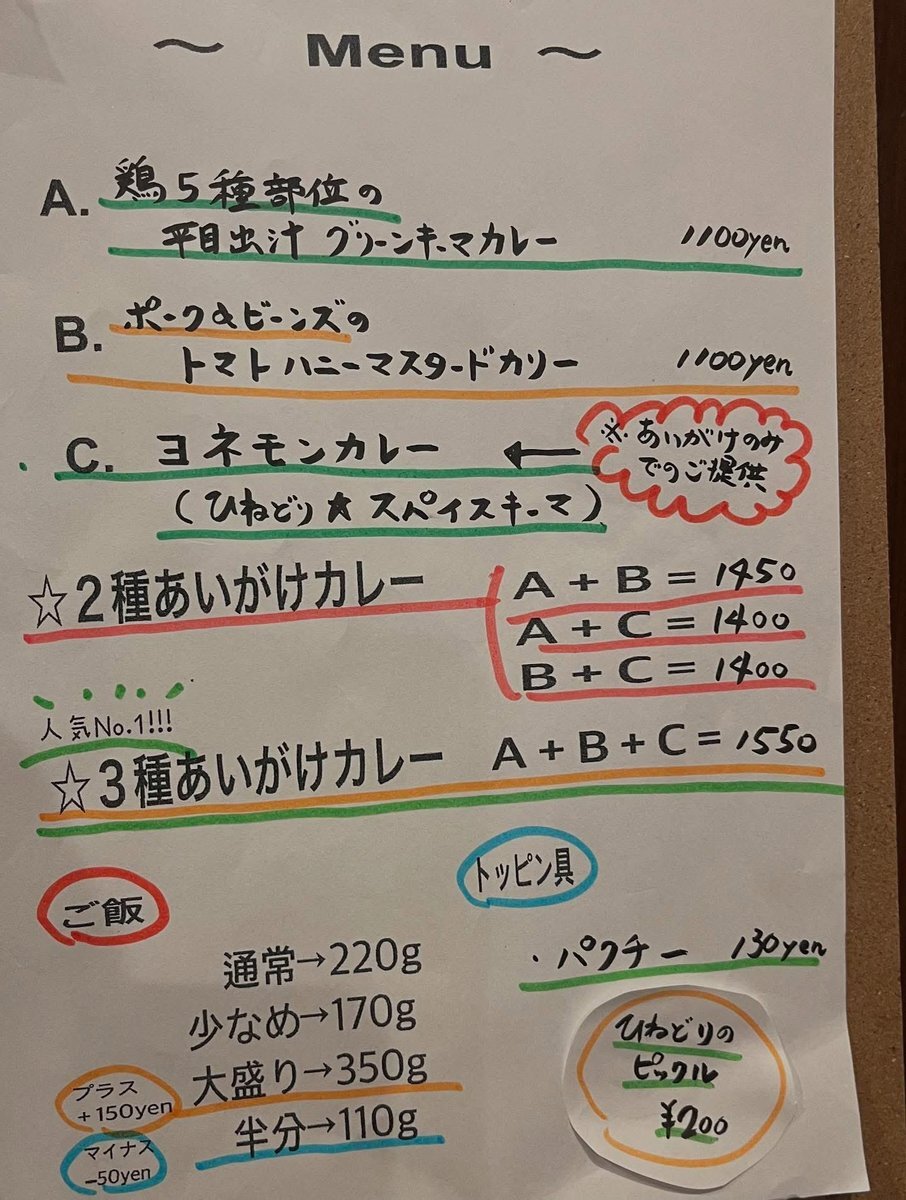 ～ Menu ～
A. 鶏5種部位の
平目出汁 グリーンキーマカレー 1100yen
B. ポーク&ビーンズの
トマトハニーマスタードカリー 1100yen
C. ヨネモンカレー ←
※あいがけのみ
でのご提供
(ひねどり★スパイスキーマ)
☆2種あいがけカレー
A+B=1450
A+C=1400
B+C=1400
人気No.1!!!
☆3種あいがけカレー A+B+C=1550
ご飯
通常→220g
少なめ→170g
大盛り→350g
プラス
+150yen
半分→110g
マイナス
-50yen
トッピン具
・パクチー 130yen
ひねどりの
ピックル
¥200